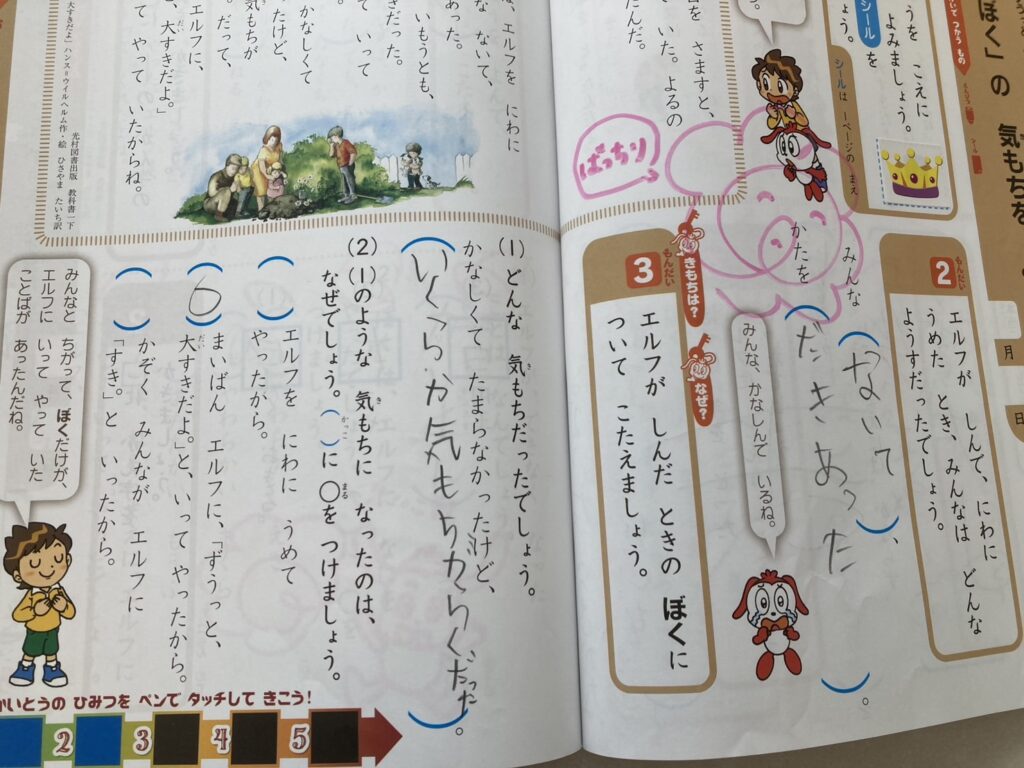 ぼく」の 気もちを
つかう もの
月
日
うを こえに
よみましょう。
シールを
ょう。
シールは 一ページの まえ
をさますと、
いた。よるの
んだ。
ばっちり
もんだい
2
エルフが しんで、にわに
うめた とき、みんなは どんな
ようすだったでしょう。
みんな
(ないて)、
かたを
(だきあった)。
みんな、かなしんで いるね。
きもちは?
なぜ?
もんだい
3
エルフが しんだ ときの ぼくに
ついて こたえましょう。
は、エルフを にわに
ないて、
あった。
いもうとも、
きだった。
いって
かなしくて
たけど、
気もちが
だって、
エルフに、
、大すきだよ。」
やって いたからね。
大すきだよ」ハンス=ウイルヘルム作・絵 ひさやま たいち訳
光村図書出版 教科書一下
(1) どんな 気もちだったでしょう。
かなしくて たまらなかったけど、
(いくらか気もちからくだった)。
(2) (1)のような 気もちに なったのは、
なぜでしょう。( )に ○を つけましょう。
( ) エルフを にわに うめて
やったから。
(○) まいばん エルフに、「ずうっと、
大すきだよ。」と、いって やったから。
( ) かぞく みんなが エルフに
「すき。」と いったから。
みんなと ちがって、ぼくだけが、
エルフに いって やって いた
ことばが あったんだね。
かいとうの ひみつを ペンで タッチして きこう!
2 3 4 5